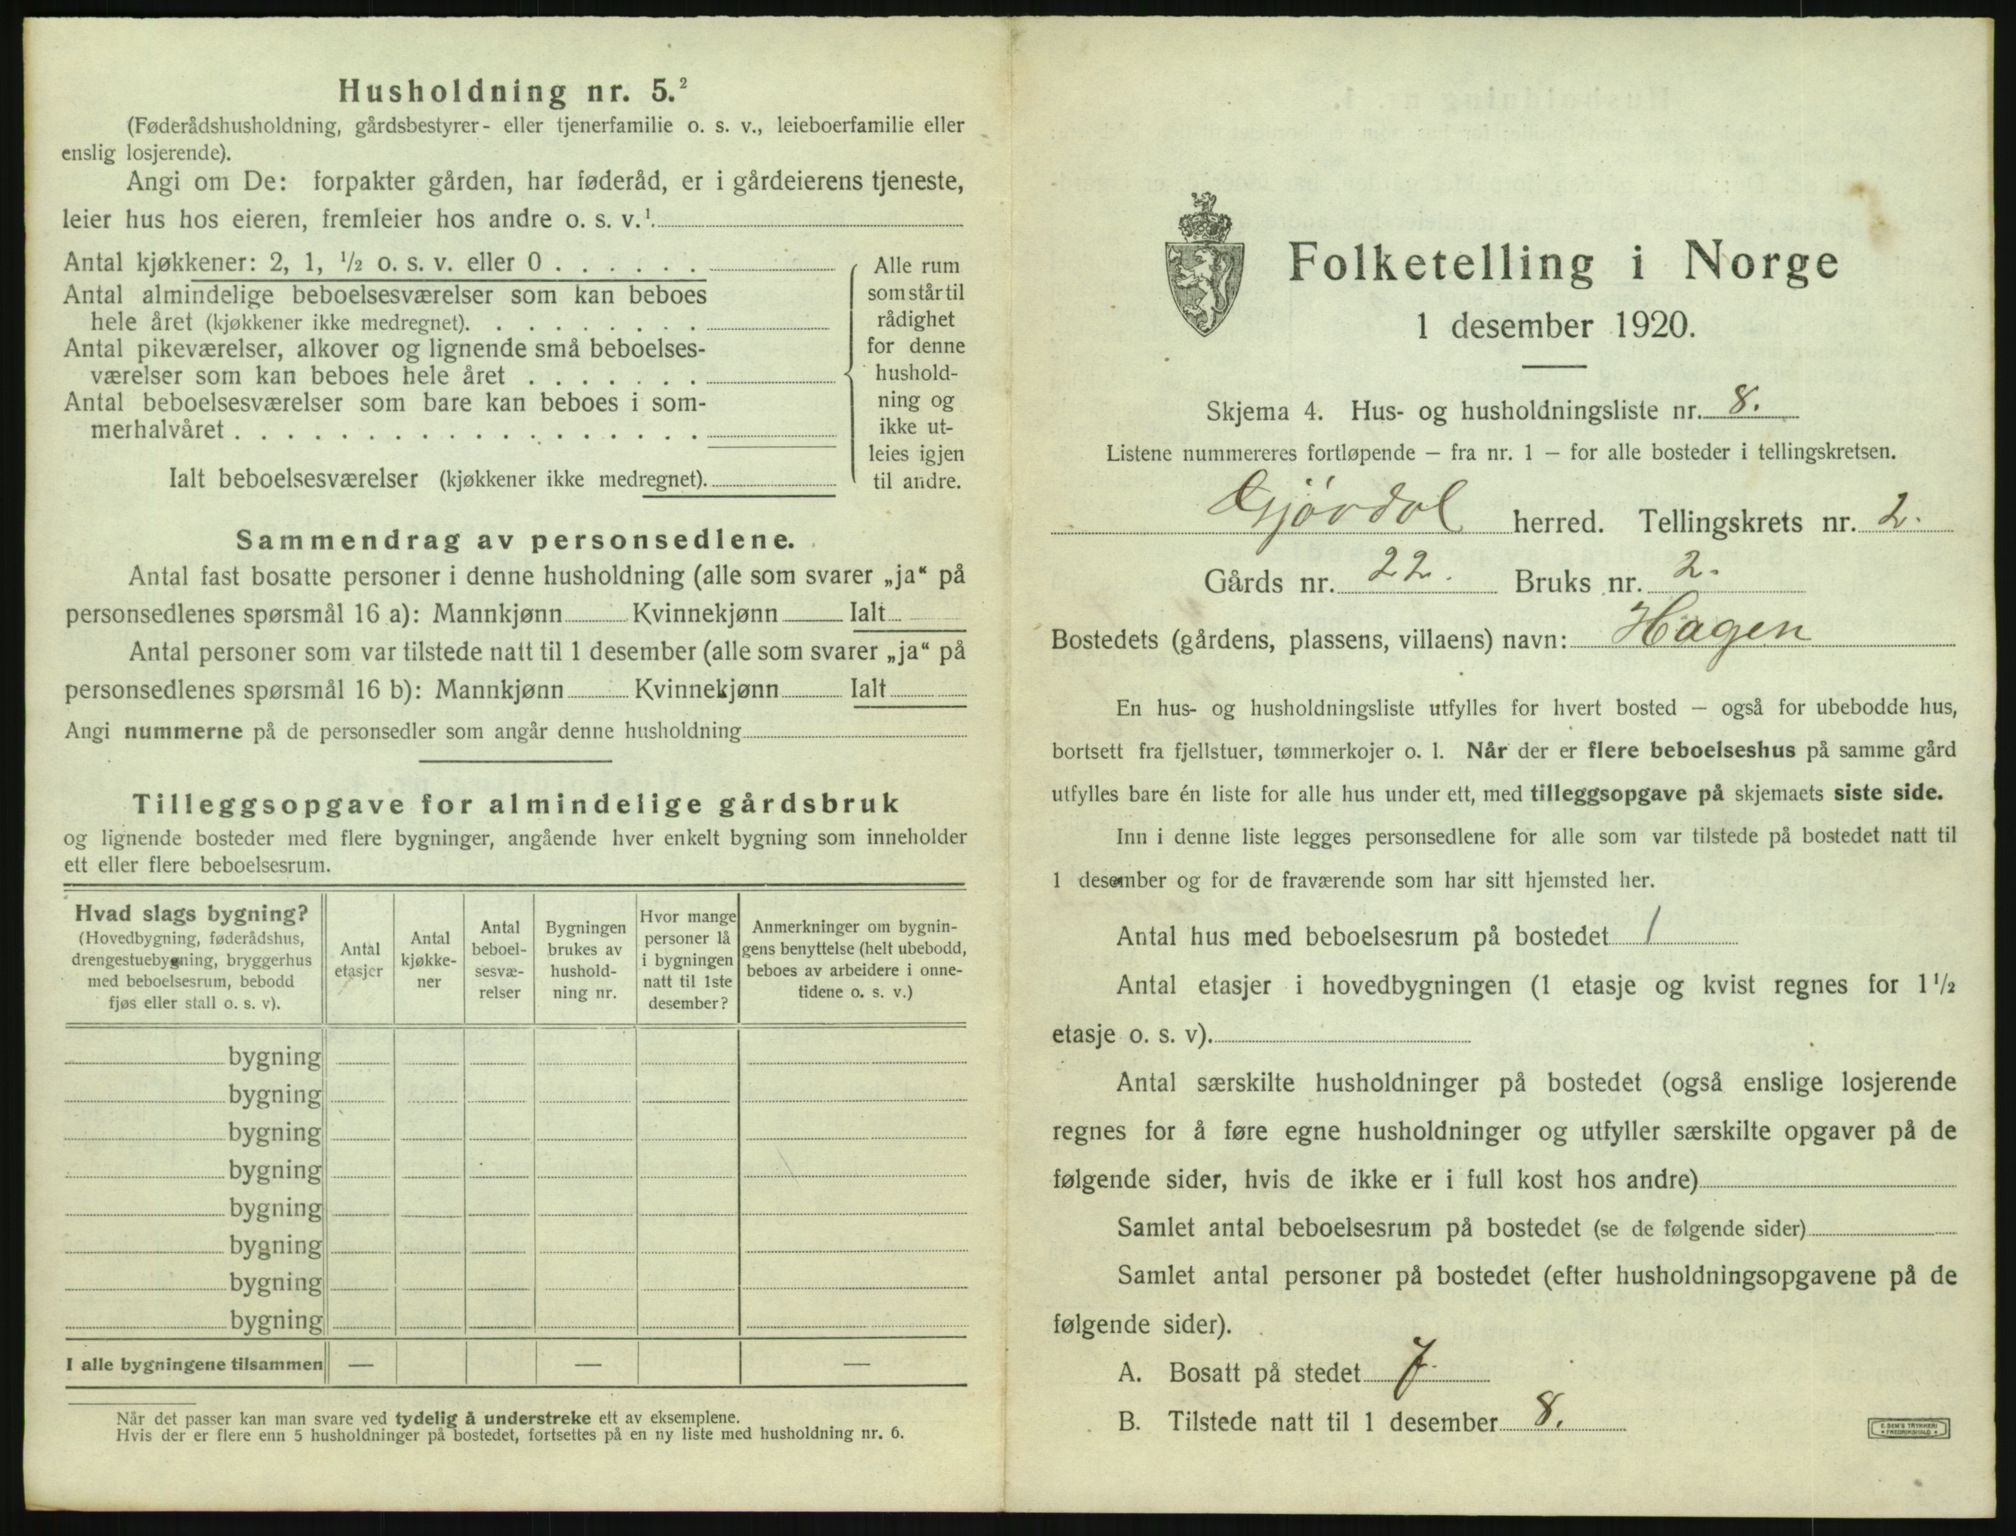 Husholdning nr. 5.²
(Føderådshusholdning, gårdsbestyrer- eller tjenerfamilie o. s. v., leieboerfamilie eller
enslig losjerende).
Angi om De: forpakter gården, har føderåd, er i gårdeierens tjeneste,
leier hus hos eieren, fremleier hos andre o. s. v.¹
Antal kjøkkener: 2, 1, ½ o. s. v. eller 0 . . . . . .
Antal almindelige beboelsesværelser som kan beboes
hele året (kjøkkener ikke medregnet). . . . . . . . .
Antal pikeværelser, alkover og lignende små beboelses-
værelser som kan beboes hele året . . . . . . .
Antal beboelsesværelser som bare kan beboes i som-
merhalvåret . . . . . . . . . . . . . . . . . .
Ialt beboelsesværelser (kjøkkener ikke medregnet).
Alle rum
som står til
rådighet
for denne
hushold-
ning og
ikke ut-
leies igjen
til andre.
Sammendrag av personsedlene.
Antal fast bosatte personer i denne husholdning (alle som svarer „ja“ på
personsedlenes spørsmål 16 a): Mannkjønn Kvinnekjønn Ialt
Antal personer som var tilstede natt til 1 desember (alle som svarer „ja“ på
personsedlenes spørsmål 16 b): Mannkjønn Kvinnekjønn Ialt
Angi nummerne på de personsedler som angår denne husholdning
Tilleggsopgave for almindelige gårdsbruk
og lignende bosteder med flere bygninger, angående hver enkelt bygning som inneholder
ett eller flere beboelsesrum.
Hvad slags bygning?
(Hovedbygning, føderådshus,
drengestuebygning, bryggerhus
med beboelsesrum, bebodd
fjøs eller stall o. s. v).
Antal
etasjer
Antal
kjøkke-
ner
Antal
beboel-
sesvæ-
relser
Bygningen
brukes av
hushold-
ning nr.
Hvor mange
personer lå
i bygningen
natt til 1ste
desember?
Anmerkninger om bygnin-
gens benyttelse (helt ubebodd,
beboes av arbeidere i onne-
tidene o. s. v.)
bygning
bygning
bygning
bygning
bygning
bygning
bygning
bygning
I alle bygningene tilsammen — — —
Når det passer kan man svare ved tydelig å understreke ett av eksemplene.
Hvis der er flere enn 5 husholdninger på bostedet, fortsettes på en ny liste med husholdning nr. 6.
Folketelling i Norge
1 desember 1920.
Skjema 4. Hus- og husholdningsliste nr. 8.
Listene nummereres fortløpende — fra nr. 1 — for alle bosteder i tellingskretsen.
Gjövdal herred. Tellingskrets nr. 2.
Gårds nr. 22. Bruks nr. 2.
Bostedets (gårdens, plassens, villaens) navn: Hagen
En hus- og husholdningsliste utfylles for hvert bosted — også for ubebodde hus,
bortsett fra fjellstuer, tømmerkojer o. l. Når der er flere beboelseshus på samme gård
utfylles bare én liste for alle hus under ett, med tilleggsopgave på skjemaets siste side.
Inn i denne liste legges personsedlene for alle som var tilstede på bostedet natt til
1 desember og for de fraværende som har sitt hjemsted her.
Antal hus med beboelsesrum på bostedet 1
Antal etasjer i hovedbygningen (1 etasje og kvist regnes for 1 ½
etasje o. s. v).
Antal særskilte husholdninger på bostedet (også enslige losjerende
regnes for å føre egne husholdninger og utfyller særskilte opgaver på de
følgende sider, hvis de ikke er i full kost hos andre)
Samlet antal beboelsesrum på bostedet (se de følgende sider)
Samlet antal personer på bostedet (efter husholdningsopgavene på de
følgende sider).
A. Bosatt på stedet 7.
B. Tilstede natt til 1 desember 8.
E. SEM'S TRYKKERI
FREDRIKSHALD